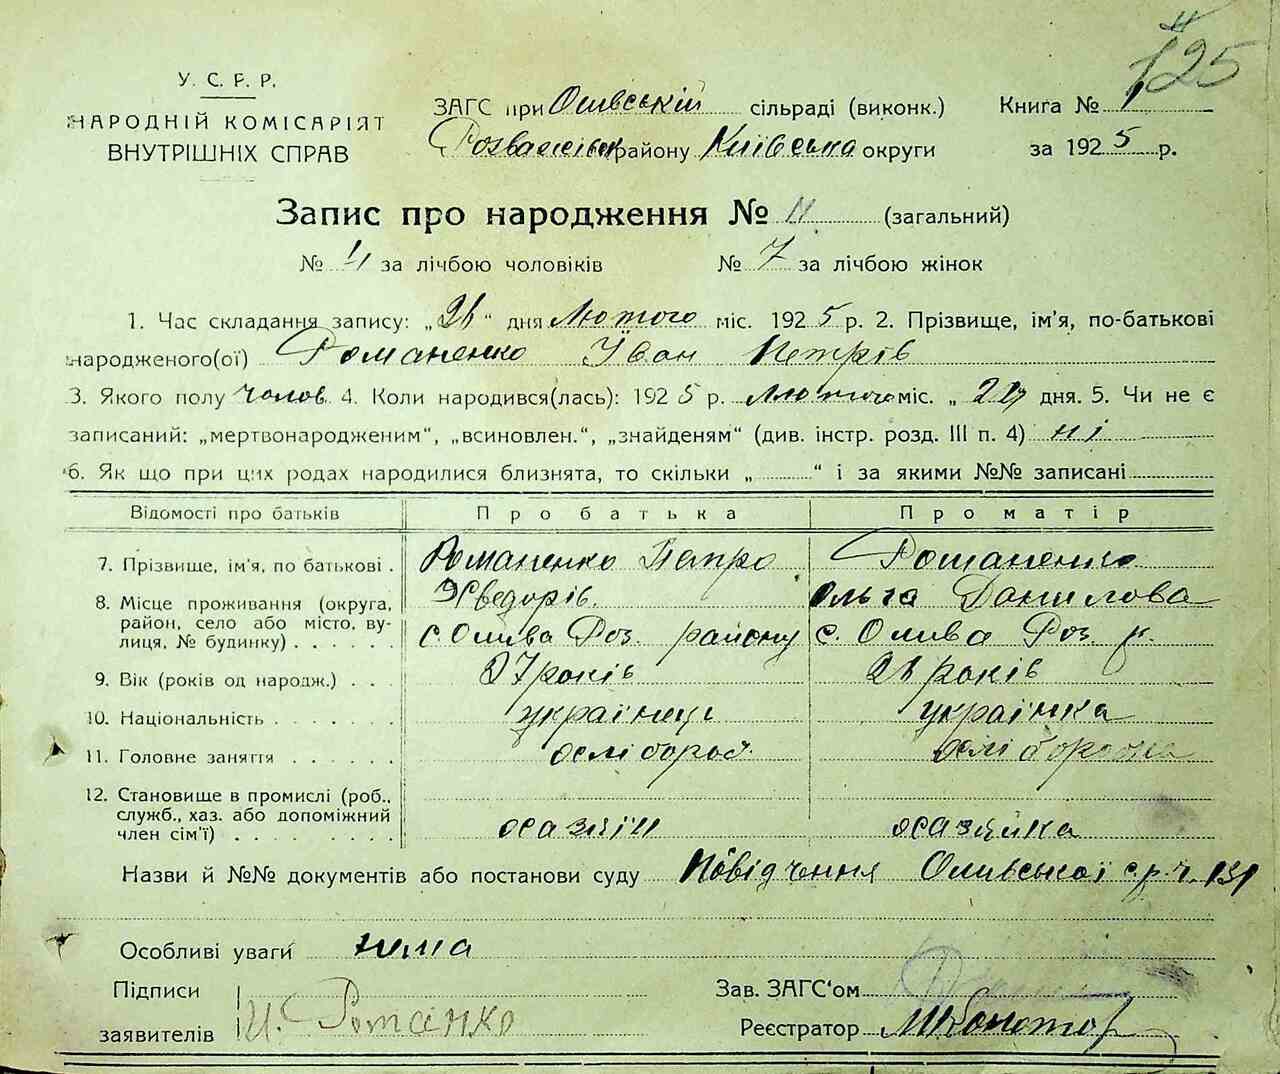 125
У. С. Р. Р.
НАРОДНІЙ КОМІСАРІЯТ
ВНУТРІШНІХ СПРАВ
ЗАГС при Оливській сільраді (виконк.)
району Київська округи
Книга № 1
за 1925 р.
Запис про народження № 11 (загальний)
№ 4 за лічбою чоловіків № 7 за лічбою жінок
1. Час складання запису: „ “ дня Лютого міс. 1925 р. 2. Прізвище, ім'я, по-батькові
народженого(ої) Романенко Їван Петрів
3. Якого полу чолов. 4. Коли народився(лась): 1925 р. лютого міс. „ дня. 5. Чи не є
записаний: „мертвонародженим“, „всиновлен.“, „знайденям“ (див. інстр. розд. III п. 4) ні
6. Як що при цих родах народилися близнята, то скільки „ “ і за якими №№ записані
Відомості про батьків Про батька Про матір
7. Прізвище, ім'я, по батькові . Романенко Петро Романенко
Хведорів. Ольга Данилова
8. Місце проживання (округа, район, село або місто, вулиця, № будинку) с. Олива Роз. району с. Олива Роз. р.
9. Вік (років од народж.) 27 років років
10. Національність українець українка
11. Головне заняття
12. Становище в промислі (роб., служб., хаз. або допоміжний член сім'ї)
Назви й №№ документів або постанови суду Повідчення Оливської с.р. ч. 131
Особливі уваги нема
Підписи
заявителів
Зав. ЗАГС'ом
Реєстратор